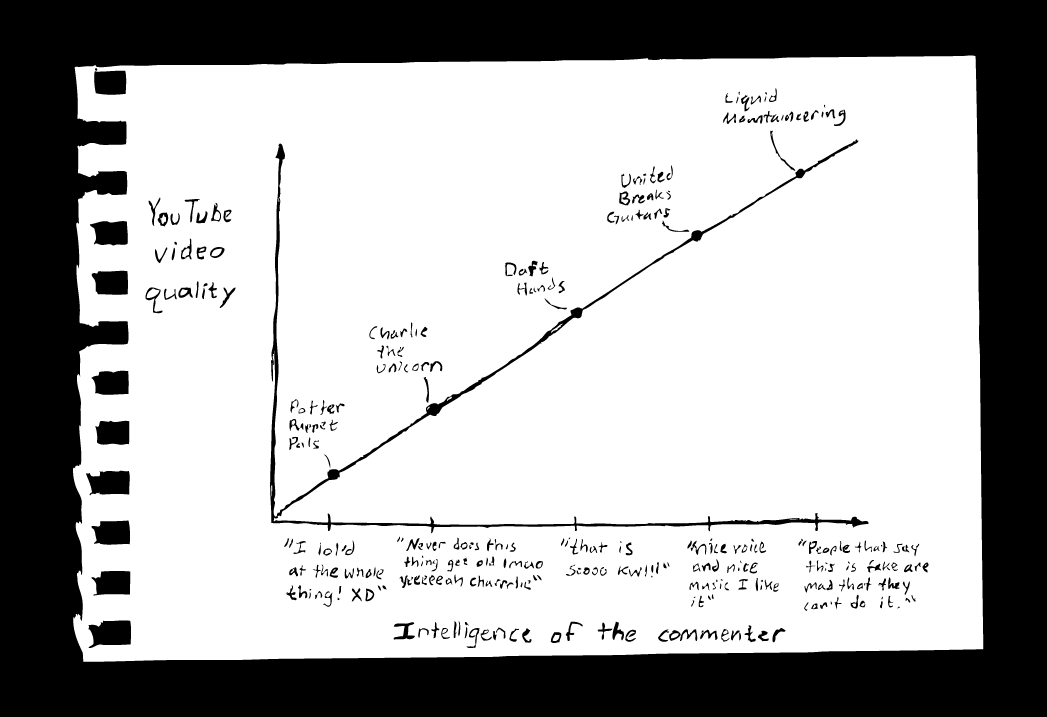 Liquid
Mountaineering
United
Breaks
Guitars
YouTube
video
quality
Daft
Hands
Charlie
the
unicorn
Potter
Puppet
Pals
"I lol'd
at the whole
thing! XD"
"Never does this
thing get old lmao
yeeeeeah charrrlie"
"that is
soooo KWl!!"
"nice voice
and nice
music I like
it"
"People that say
this is fake are
mad that they
can't do it."
Intelligence of the commenter